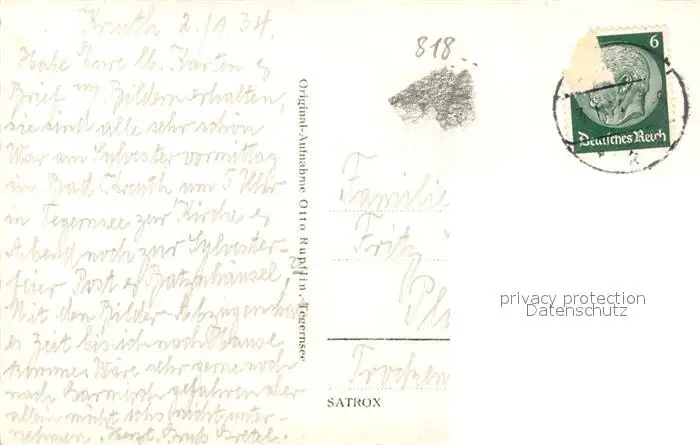 Kreuth 2./1.34.
Habe Eure lb. Karten &
Brief m/ Bildern erhalten,
sie sind alle sehr schön
War am Sylvester vormittag
in Bad Kreuth um 5 Uhr
in Tegernsee zur Kirche &
Abend noch zur Sylvester-
feier Post & Batznhäusel
Mit den Bilder-Abzügen
es Zeit bis ich nach Hause
komme. Wäre sehr gerne noch
nach Garmisch gefahren aber
allein nicht unter-
nehmen. Herzl. Gruß Gretel.
Original-Aufnahme Otto Rupflin, Tegernsee
818
6
Deutsches Reich
Familie
Fritz
SATROX
privacy protection
Datenschutz